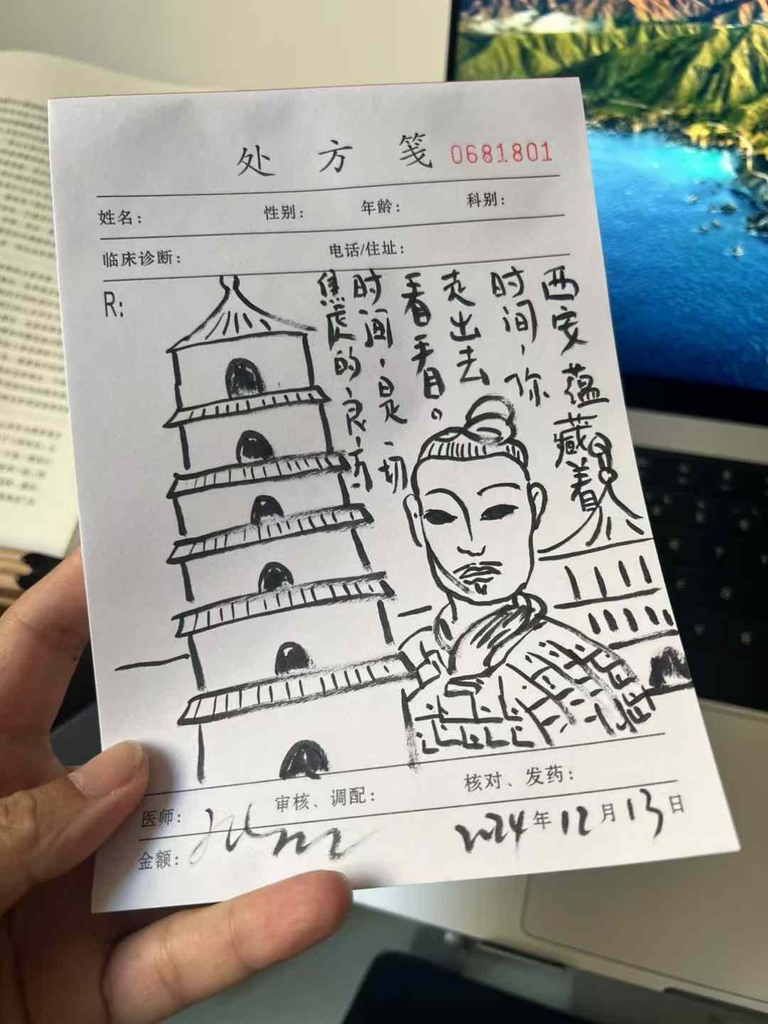 处方笺 0681801
姓名: 性别: 年龄: 科别:
临床诊断: 电话/住址:
R:
西安蕴藏着
时间,你
走出去
看看自。
时间,是一切
焦虑的良方
医师: 审核、调配: 核对、发药:
金额: 2024年12月13日